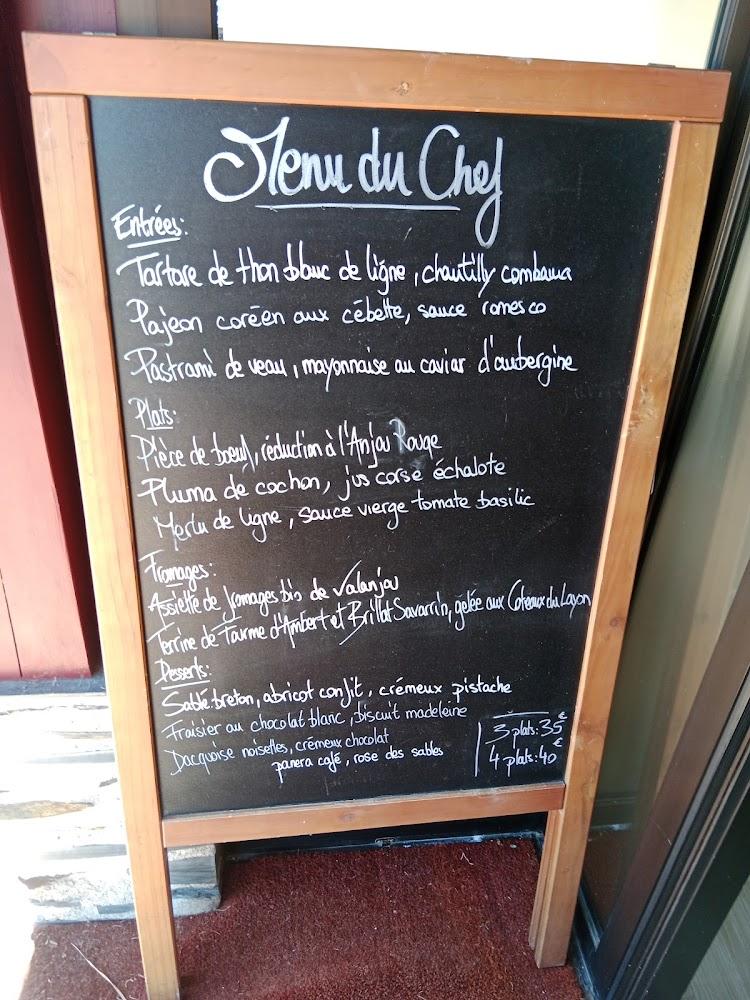 Menu du Chef
Entrées:
Tartare de thon blanc de ligne, chantilly combawa
Pajeon coréen aux cébette, sauce romesco
Pastrami de veau, mayonnaise au caviar d'aubergine
Plats:
Pièce de boeuf, réduction à l'Anjou Rouge
Pluma de cochon, jus corsé échalote
Merlu de ligne, sauce vierge tomate basilic
Fromages:
Assiette de fromages bio de Valanjou
Terrine de Fourme d'Ambert et Brillat Savarrin, gelée aux Coteaux du Layon
Desserts:
Sablé breton, abricot confit, crémeux pistache
Fraisier au chocolat blanc, biscuit madeleine
Dacquoise noisettes, crémeux chocolat
panera café, rose des sables
3 plats: 35€
4 plats: 40€